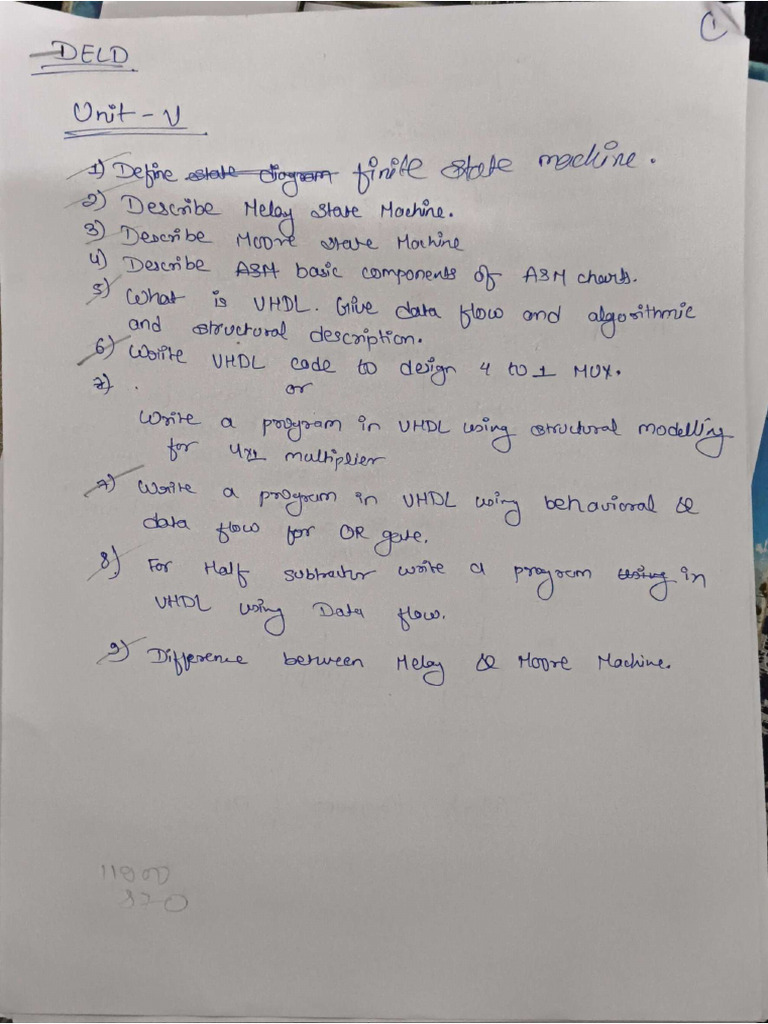 DELD
Unit - V
1) Define state diagram finite state machine.
2) Describe Melay State Machine.
3) Describe Moore state Machine
4) Describe ASM basic components of ASM charts.
5) What is VHDL. Give data flow and algorithmic
and structural description.
6) Write VHDL code to design 4 to 1 MUX.
7) . or
Write a program in VHDL using structural modelling
for 4x1 multiplier
7) Write a program in VHDL using behavioral &
data flow for OR gate.
8) For Half subtractor write a program using in
VHDL using Data flow.
9) Difference between Melay & Moore Machine.